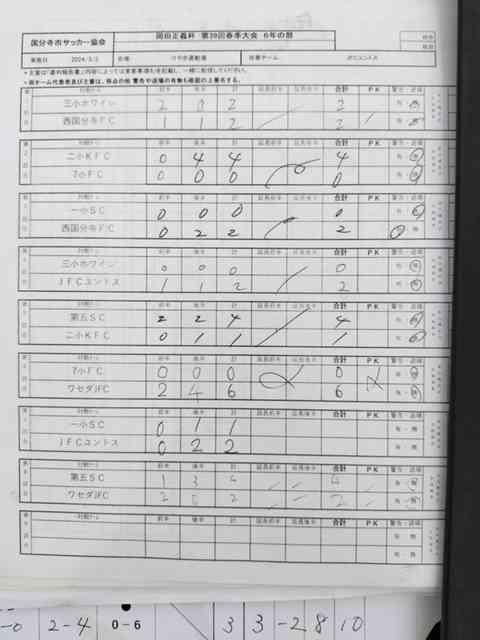 国分寺市サッカー協会 岡田正義杯 第39回春季大会 6年の部
実施日 2024/3/2 会場 けやき運動場 当番チーム JFCユントス
対戦チーム 前半 後半 計 延長前半 延長後半 合計 PK 警告・退場
三小ホワイン 2 0 2 2 有・無
西国分寺FC 1 1 2 2 有・無
対戦チーム 前半 後半 計 延長前半 延長後半 合計 PK 警告・退場
二小KFC 0 4 4 4 有・無
7小FC 0 0 0 0 有・無
対戦チーム 前半 後半 計 延長前半 延長後半 合計 PK 警告・退場
一小SC 0 0 0 0 有・無
西国分寺FC 0 2 2 2 有・無
対戦チーム 前半 後半 計 延長前半 延長後半 合計 PK 警告・退場
三小ホワイン 0 0 0 0 有・無
JFCユントス 1 1 2 2 有・無
対戦チーム 前半 後半 計 延長前半 延長後半 合計 PK 警告・退場
第五SC 2 2 4 4 有・無
二小KFC 0 1 1 1 有・無
対戦チーム 前半 後半 計 延長前半 延長後半 合計 PK 警告・退場
7小FC 0 0 0 0 有・無
ワセダJFC 2 4 6 6 有・無
対戦チーム 前半 後半 計 延長前半 延長後半 合計 PK 警告・退場
一小SC 0 1 1 有・無
JFCユントス 0 2 2 有・無
対戦チーム 前半 後半 計 延長前半 延長後半 合計 PK 警告・退場
第五SC 1 3 4 4 有・無
ワセダJFC 2 0 2 2 有・無
対戦チーム 前半 後半 計 延長前半 延長後半 合計 PK 警告・退場
有・無
有・無
-0 2-4 0-6 3 3 -2 8 10